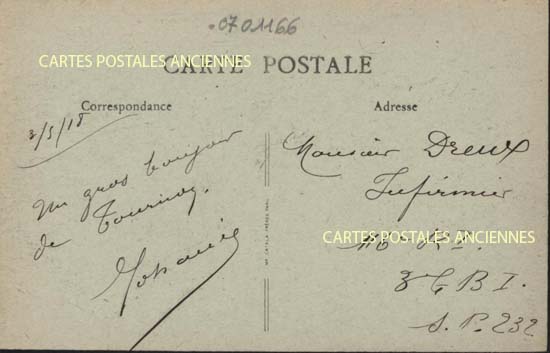 .0701166
CARTES POSTALES ANCIENNES
CARTE POSTALE
Correspondance
Adresse
3/5/18
Un gros bonjour
de Tournay.
Monsieur Dreux
Infirmier
CARTES POSTALES ANCIENNES
B I.
S. P. 232